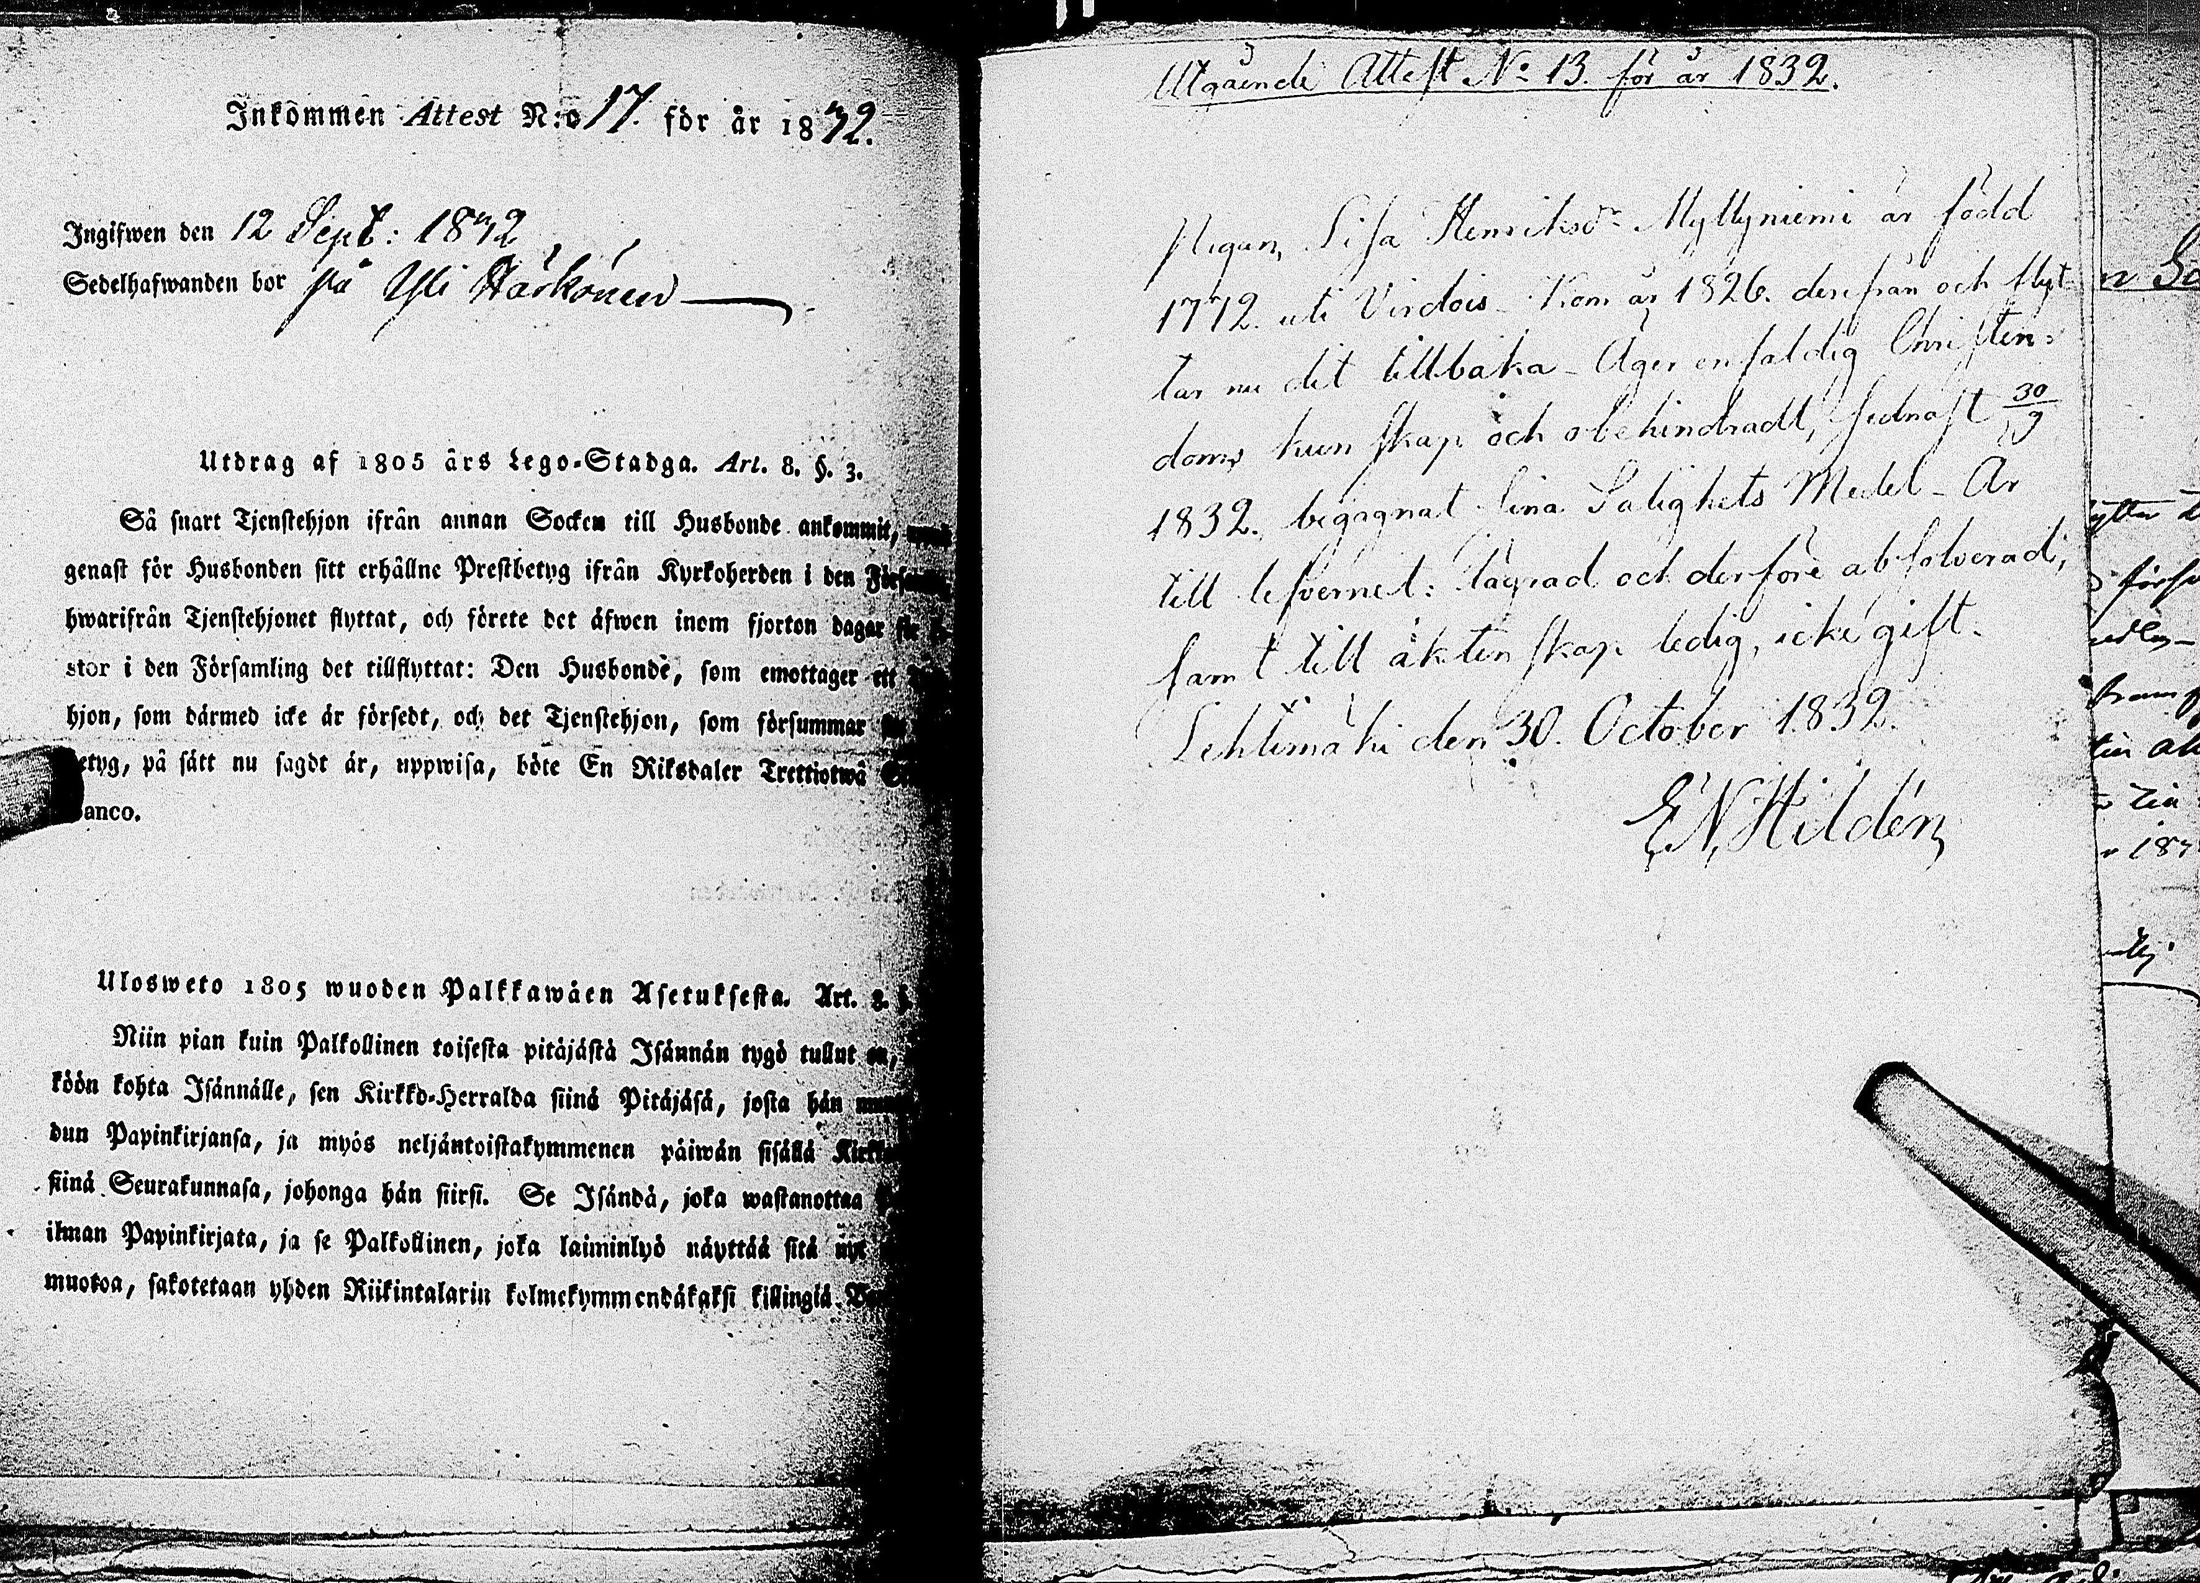 Inkommen Attest N:o 17. för år 1832.
Ingifwen den 12 Sept: 1832
Sedelhafwanden bor på Yli Härkönen
Utdrag af 1805 års Lego-Stadga. Art. 8. §. 3.
Så snart Tjenstehjon ifrån annan Socken till Husbonde ankommit,
genast för Husbonden sitt erhållne Prestbetyg ifrån Kyrkoherden i den
hwarifrån Tjenstehjonet flyttat, och förete det äfwen inom fjorton dagar
stor i den Församling det tillflyttat: Den Husbonde, som emottager ett
hjon, som därmed icke är försedt, och det Tjenstehjon, som försummar
etyg, på sätt nu sagdt är, uppwisa, böte En Riksdaler Trettiotwå
anco.
Ulosweto 1805 wuoden Palkkawäen Asetuksesta. Art. 8. §.
Niin pian kuin Palkollinen toisesta pitäjästä Isännän tygö tullut on,
köön kohta Isännälle, sen Kirkko-Herralda siinä Pitäjäsä, josta hän
dun Papinkirjansa, ja myös neljäntoistakymmenen päiwän sisällä
siinä Seurakunnasa, johonga hän siirsi. Se Isändä, joka wastanottaa
ilman Papinkirjata, ja se Palkollinen, joka laiminlyö näyttää sitä nyt
muotoa, sakotetaan yhden Riikintalarin kolmekymmendäkaksi killingiä.
Utgående Attest No 13. för år 1832.
Pigan, Lisa Henriksdr Myllyniemi är född
1772. uti Virdois. Kom år 1826. derifrån och flyt-
tar nu dit tillbaka - Äger enfaldig Christen-
doms kunskap och obehindradt, sednast 30/9
1832. begagnat sina Salighets Medel - Är
till lefvernet: lagrad och derföre absolverad,
samt till äktenskap ledig, icke gift.
Lehtimäki den 30. October 1832.
E N Hildén